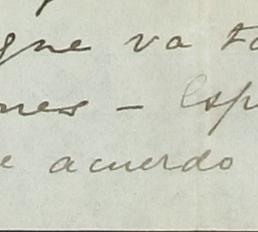 que va to
nes — Esp
e acuerdo